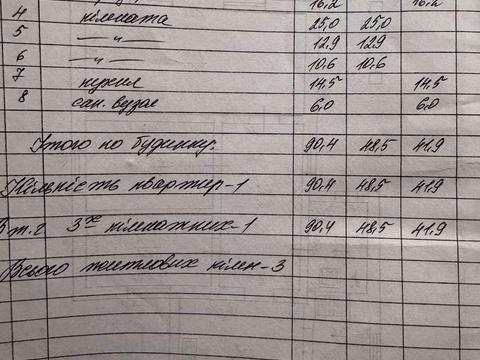 16,2 16,2
4 кімната 25,0 25,0
5 — " — 12,9 12,9
6 — " — 10,6 10,6
7 кухня 14,5 14,5
8 сан. вузол 6,0 6,0
Ітого по будинку: 90,4 48,5 41,9
Кількість квартир-1 90,4 48,5 41,9
В т.г 3х кімнатних-1 90,4 48,5 41,9
Всього житлових кімн-3